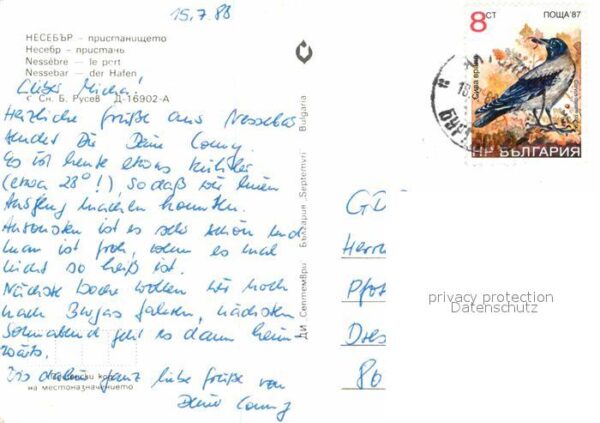 15.7.88
НЕСЕБЪР – пристанището
Несебр – пристань
Nessèbre — le port
Nessebar — der Hafen
Сн. Б. Русев Д-16902-А
Lieber Micha!
Herzliche Grüße aus Nessebar
sendet Dir Deine Conny.
Es ist heute etwas kühler
(etwa 28°!), so daß wir einen
Ausflug machen konnten.
Ansonsten ist es sehr schön und
man ist froh, wenn es mal
nicht so heiß ist.
Nächste Woche wollen wir noch
nach Burgas fahren, nächsten
Sonnabend geht es dann heim-
wärts.
Bis dahin ganz liebe Grüße von
Deine Conny
на местоназначението
ДИ „Септември“ България „Septemvri“ Bulgaria
8 СТ ПОЩА'87
Сива врана
НР БЪЛГАРИЯ
GD
Herrn
Dres
80
privacy protection
Datenschutz